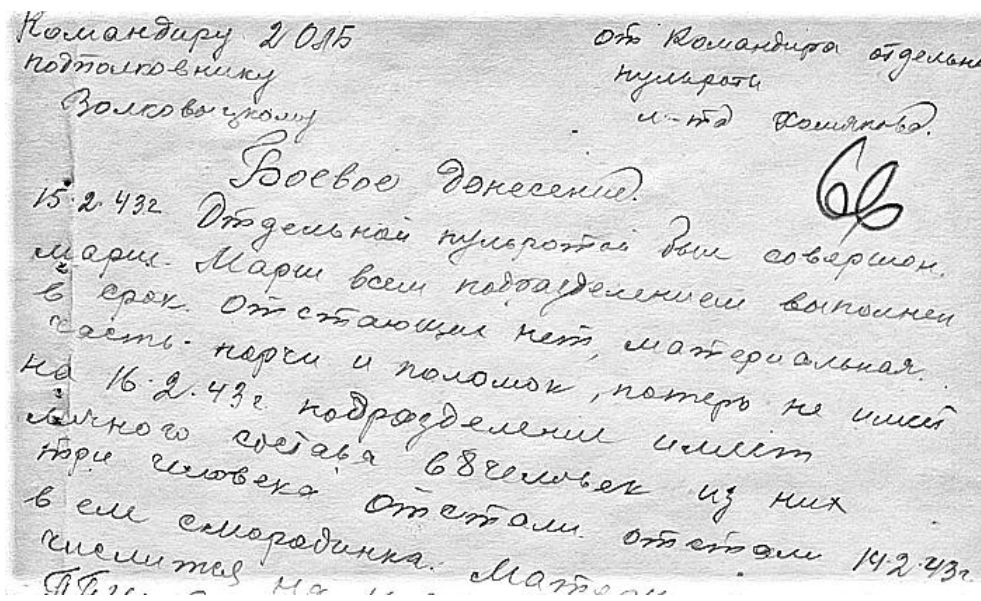 Командиру 2 ОЛБ
подполковнику
Волковыцкому
от Командира отдельн
пульроты
л-та Хомякова.
66
Боевое донесение.
15.2.43г Отдельной пульротой был совершон.
марш. Марш всем подразделением выполнен
в срок. Отстающих нет, материальная.
часть. порчи и поломок, потерь не имеет
на 16.2.43г. подразделение имеет
личного состава 68 человек из них
три человека отстали. отстали 14.2.43г.
в сел смородинка. Матер
числится на